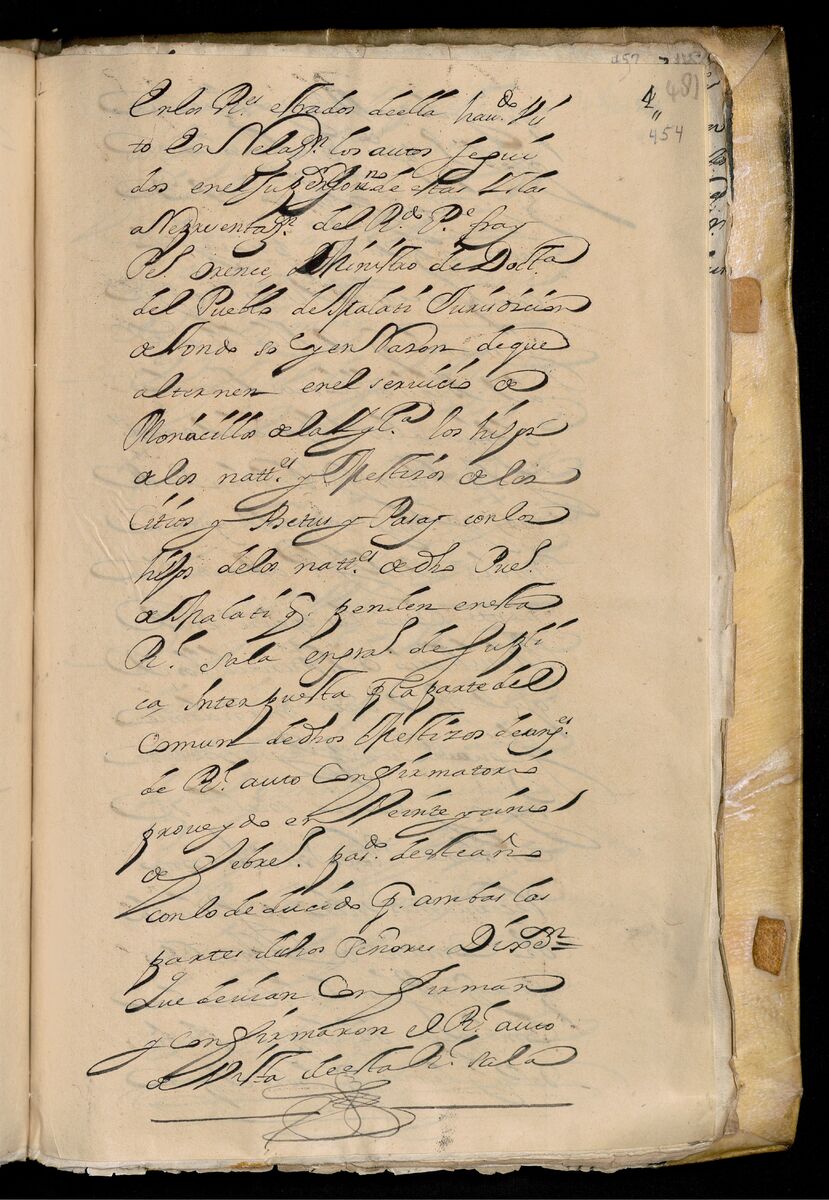 457
481
4
454
En los R.s estrados de ella hau.do Vis
to En Relaz.on los autos segui
dos en el Juzg.do de estas Yslas
a Representaz.on del R.do P.e fray
Ministro de Doct.a
del Pueblo de Malati Jurisdicion
de tondo s.re y en Razon de que
alternen en el servicio de
Monacillos de la Ygl.a los hijos
de los natt.es y Mestizos de los
Citios y Betus y Pasay con los
hijos de los natt.es de dho Pue.
de Malati q. penden en esta
R.l sala en gra. de supli
ca Interpuesta p. la parte del
Comun de dhos Mestizos
de R.l auto Confirmatorio
proveydo en Veinte y cinco
de Febre. pas.do de este año
con lo deducido p. ambas las
partes dichos Señores Dixeron
Que devian Confirmar
y confirmaron el R.l auto
de Vista de esta R.l sala